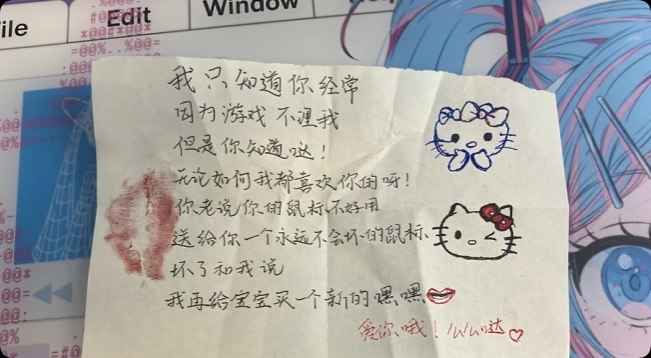 ile
Edit
Window
我只知道你经常
因为游戏不理我
但是你知道哒！
无论如何我都喜欢你的呀！
你老说你的鼠标不好用
送给你一个永远不会坏的鼠标
坏了和我说
我再给宝宝买一个新的嘿嘿
爱你哦！么么哒